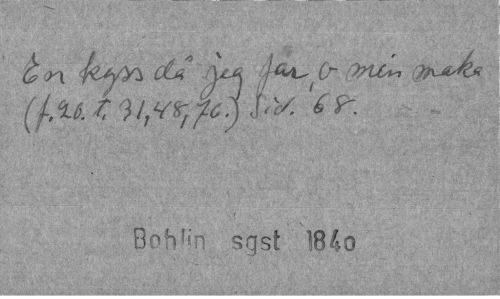 En kyss då jeg far, o min maka
(f. 20. t. 31, 48, 76.) Sid. 68.
Bohlin sgst 1840